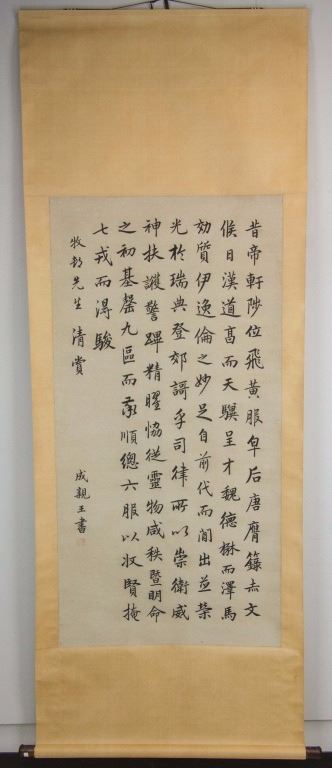 昔帝軒陟位飛黃服皁后唐膺籙赤文
候日漢道髙而天驥呈才魏德楙而澤馬
効質伊逸倫之妙足自前代而間出並榮
光於瑞典登郊謌乎司律所以崇衛威
神扶護警蹕精曜恊從靈物咸秩曁明命
之初基罄九區而率順總六服以收賢掩
七戎而得駿
牧邨先生清賞
成親王書